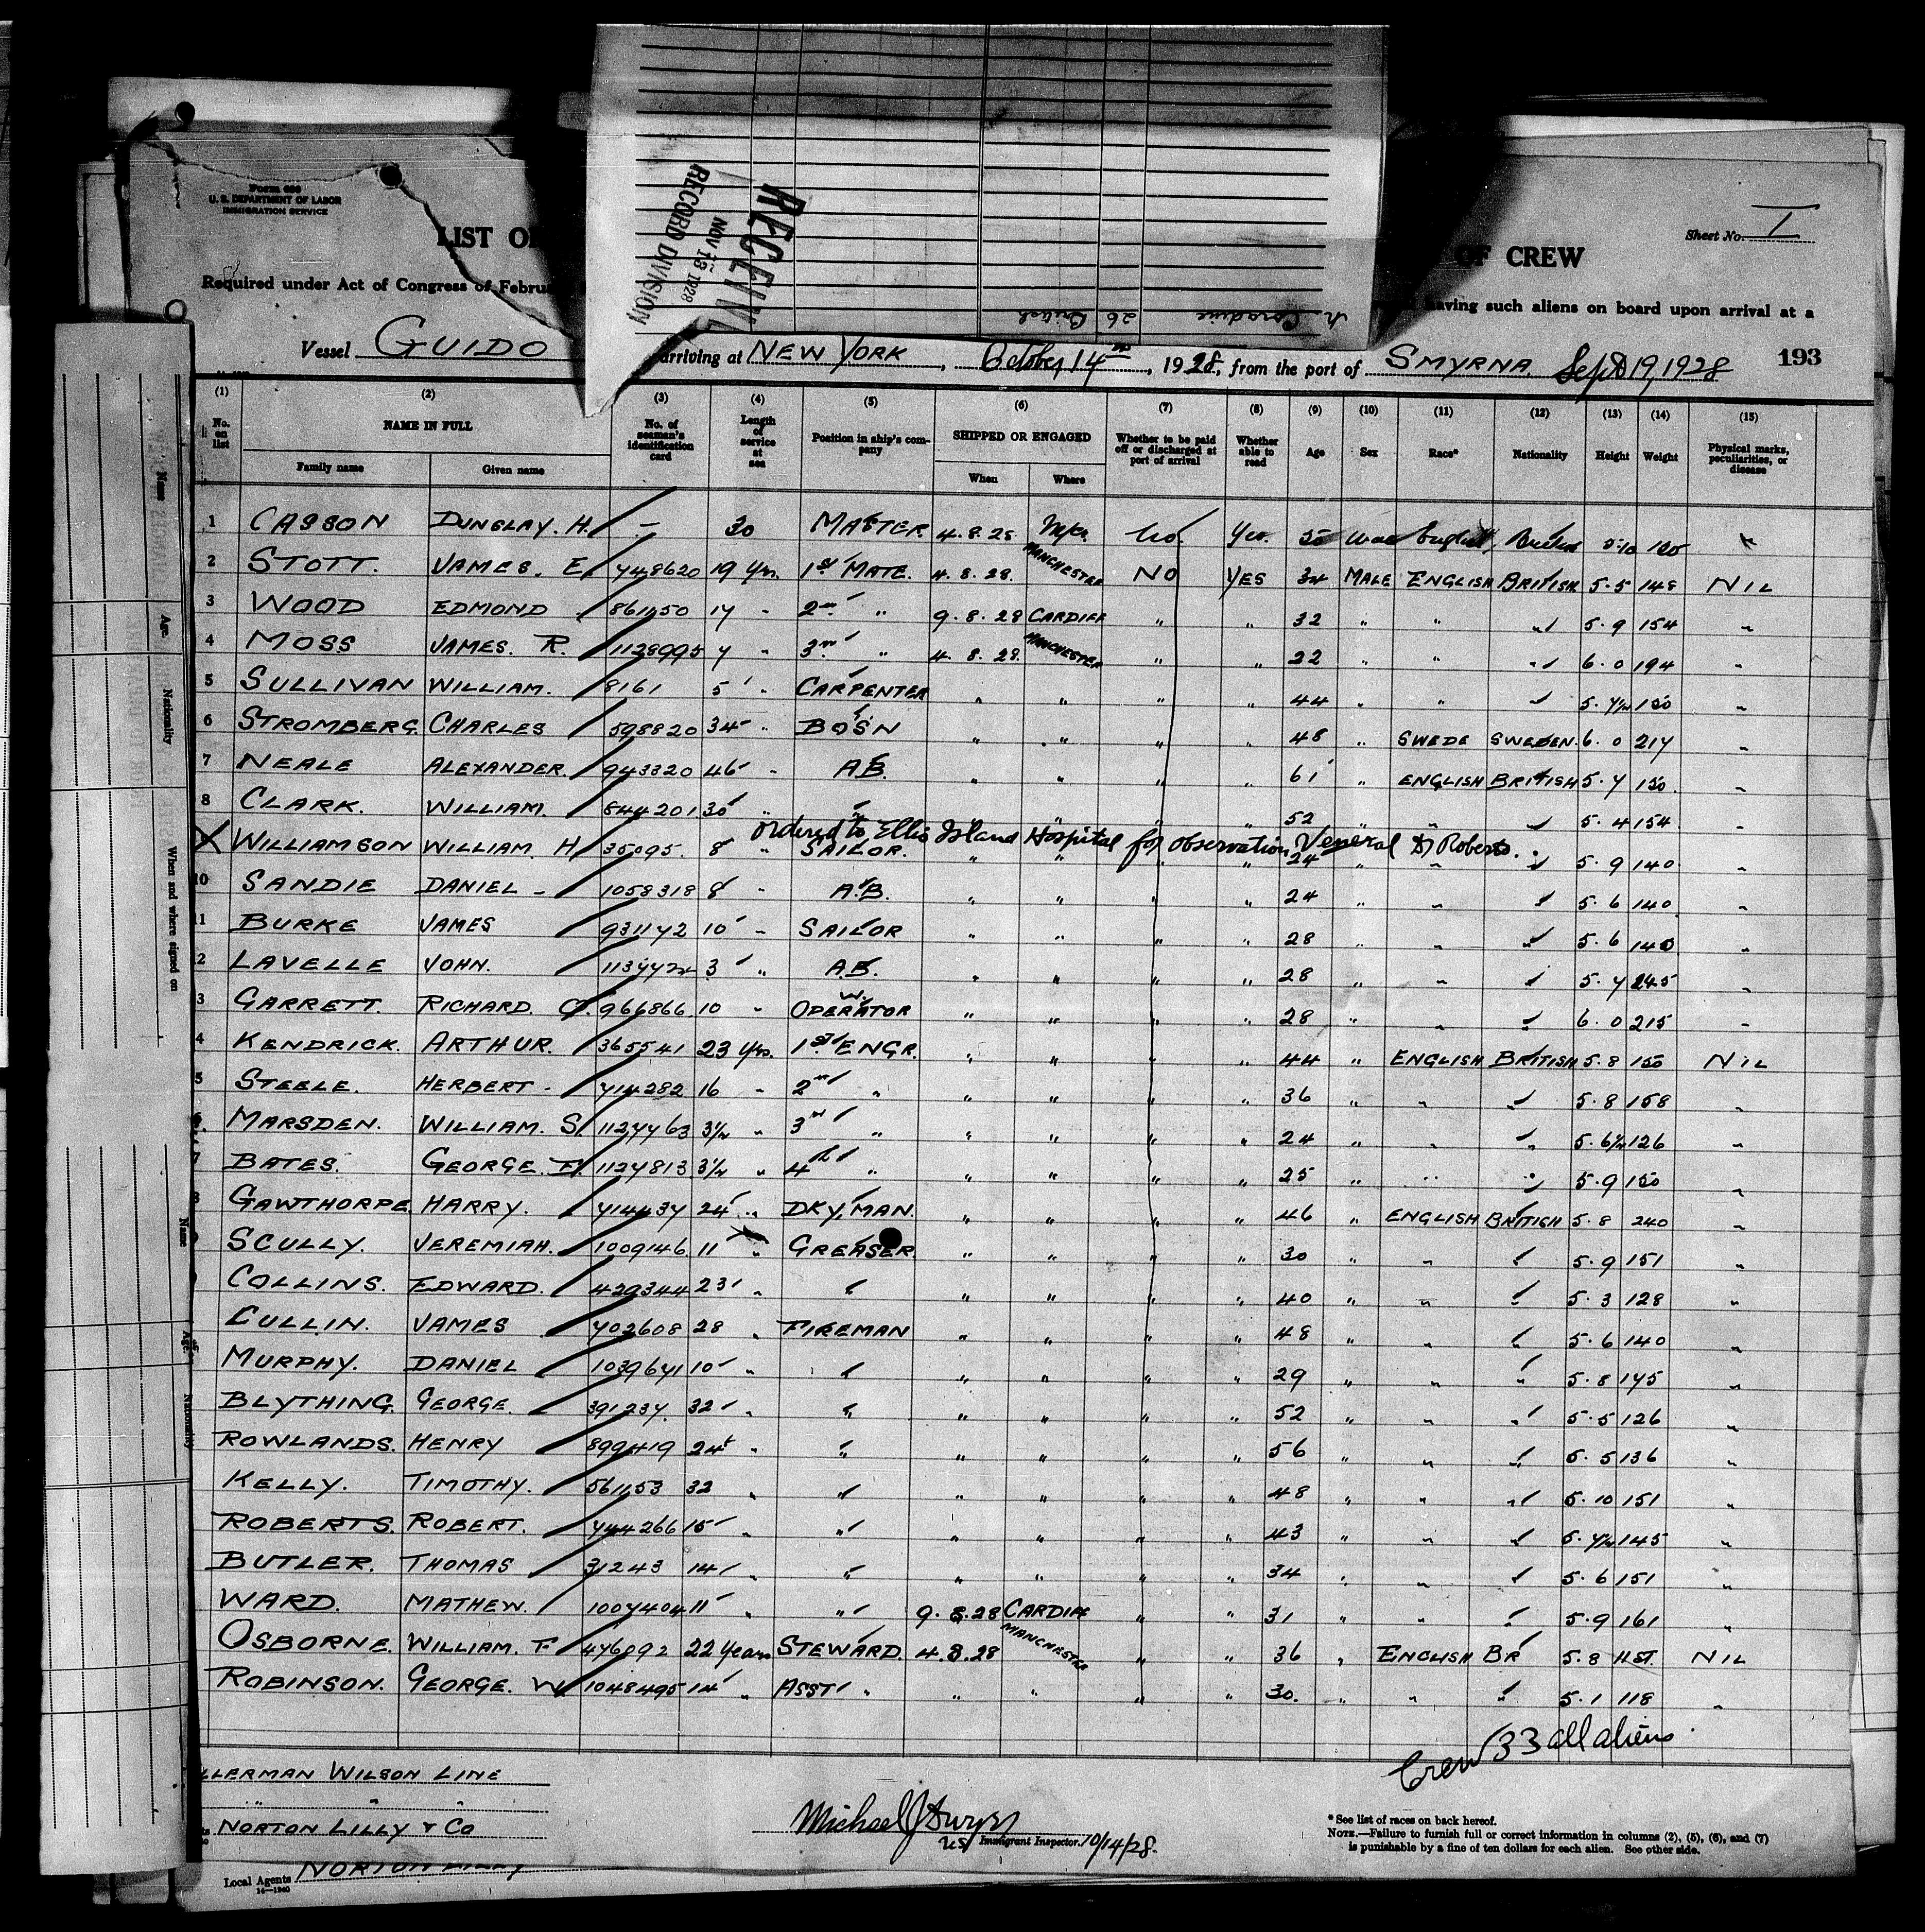 Form 689
U. S. DEPARTMENT OF LABOR
IMMIGRATION SERVICE
RECEIVED
NOV 13 1928
RECORD DIVISION
26 British
Sheet No. I
LIST OF CREW
Required under Act of Congress of having such aliens on board upon arrival at a
Vessel GUIDO arriving at NEW YORK, October 14th, 1928, from the port of SMYRNA Sept 19, 1928 193
(1) (2) (3) (4) (5) (6) (7) (8) (9) (10) (11) (12) (13) (14) (15)
No. on list NAME IN FULL No. of seaman's identification card Length of service at sea Position in ship's company SHIPPED OR ENGAGED Whether to be paid off or discharged at port of arrival Whether able to read Age Sex Race* Nationality Height Weight Physical marks, peculiarities, or disease
Family name Given name When Where
1 CASSON DUNSLAY. H. – 30 MASTER 4.8.28 No. Yes. English British 5.10
2 STOTT. JAMES. E. 748620 19 Yrs. 1st MATE. 4.8.28. MANCHESTER NO YES 34 MALE ENGLISH BRITISH 5.5 148 NIL
3 WOOD EDMOND 861150 17 " 2nd " 9.8.28 CARDIFF " " 32 " " " 5.9 154 "
4 MOSS JAMES. R. 1128995 7 " 3rd " 4.8.28. MANCHESTER " " 22 " " " 6.0 194 "
5 SULLIVAN WILLIAM. 8161 5 " CARPENTER " " " " 44 " " " 5.7½ 150 "
6 STROMBERG. CHARLES 598820 34 " BOSN " " " " 48 " SWEDE SWEDEN. 6.0 217 "
7 NEALE ALEXANDER. 943320 46 " A.B. " " " " 61 " ENGLISH BRITISH 5.7 150. "
8 CLARK. WILLIAM. 644201 30 " " " " " " 52 " " " 5.4 154 "
ordered to Ellis Island Hospital for observation Veneral Dr Roberts.
X WILLIAMSON WILLIAM. H 35095. 8 " SAILOR. " " " " 24 " " " 5.9 140 "
10 SANDIE DANIEL – 1058318 8 " A.B. " " " " 24 " " " 5.6 140 "
11 BURKE JAMES 931172 10 " SAILOR " " " " 28 " " " 5.6 140 "
2 LAVELLE JOHN. 3 " A.B. " " " " 28 " " " 5.7 245 "
3 GARRETT. RICHARD. 966866 10 " W. OPERATOR " " " " 28 " " " 6.0 215 "
4 KENDRICK. ARTHUR. 365541 23 Yrs. 1st ENGR. " " " " 44 " ENGLISH BRITISH 5.8 150 NIL
5 STEELE. HERBERT – 714282 16 " 2nd " " " " " 36 " " " 5.8 158 "
6 MARSDEN. WILLIAM. S. 1127763 3½ " 3rd " " " " " 24 " " " 5.6½ 126 "
7 BATES. GEORGE. F. 1127813 3½ " 4th " " " " " 25 " " " 5.9 150 "
8 GAWTHORPE. HARRY. 714437 24 " DKY. MAN. " " " " 46 " ENGLISH BRITISH 5.8 240 "
SCULLY. JEREMIAH. 1009146 11 " GREASER. " " " " 30 " " " 5.9 151 "
COLLINS. EDWARD. 429344 23 " " " " " " 40 " " " 5.3 128 "
CULLIN. JAMES 702608 28 " FIREMAN " " " " 48 " " " 5.6 140 "
MURPHY. DANIEL 1039671 10 " " " " " " 29 " " " 5.8 145 "
BLYTHING. GEORGE. 391237. 32 " " " " " " 52 " " " 5.5 126 "
ROWLANDS. HENRY 899419 24 " " " " " " 56 " " " 5.5 136 "
KELLY. TIMOTHY. 561153 32 " " " " " " 48 " " " 5.10 151 "
ROBERTS. ROBERT. 744266 15 " " " " " " 43 " " " 5.7½ 145 "
BUTLER. THOMAS 31243 14 " " " " " " 34 " " " 5.6 151 "
WARD. MATHEW. 1007404 11 " " 9.8.28 CARDIFF " " 31 " " " 5.9 161 "
OSBORNE. WILLIAM. F 476092 22 Years STEWARD. 4.8.28 MANCHESTER " " 36 " ENGLISH BR 5.8 11ST. NIL
ROBINSON. GEORGE. W 1048495 14 " ASST " " " " " 30. " " " 5.1 118 "
Crew 33 all aliens
LLERMAN WILSON LINE
" " "
NORTON LILLY & Co
Michael J Dwyer
US Immigrant Inspector. 10/14/28.
Local Agents NORTON LILLY
14—1240
* See list of races on back hereof.
NOTE.—Failure to furnish full or correct information in columns (2), (5), (6), and (7)
is punishable by a fine of ten dollars for each alien. See other side.
Name
Age.
Nationality
When and where signed on
Name
Age.
Nationality